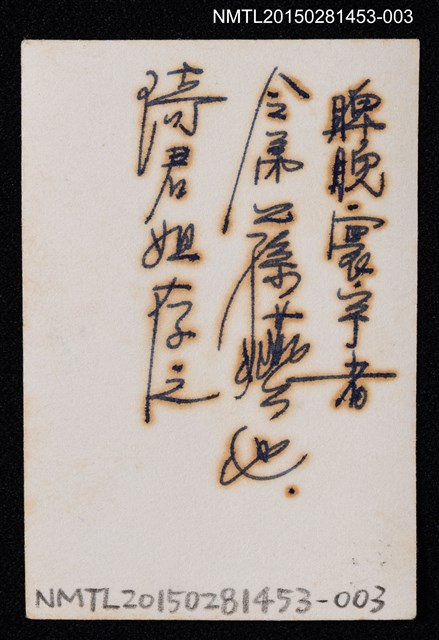 NMTL20150281453-003
睥睨寰宇者
令弟公孫嬿也.
琦君姐存之
NMTL20150281453-003